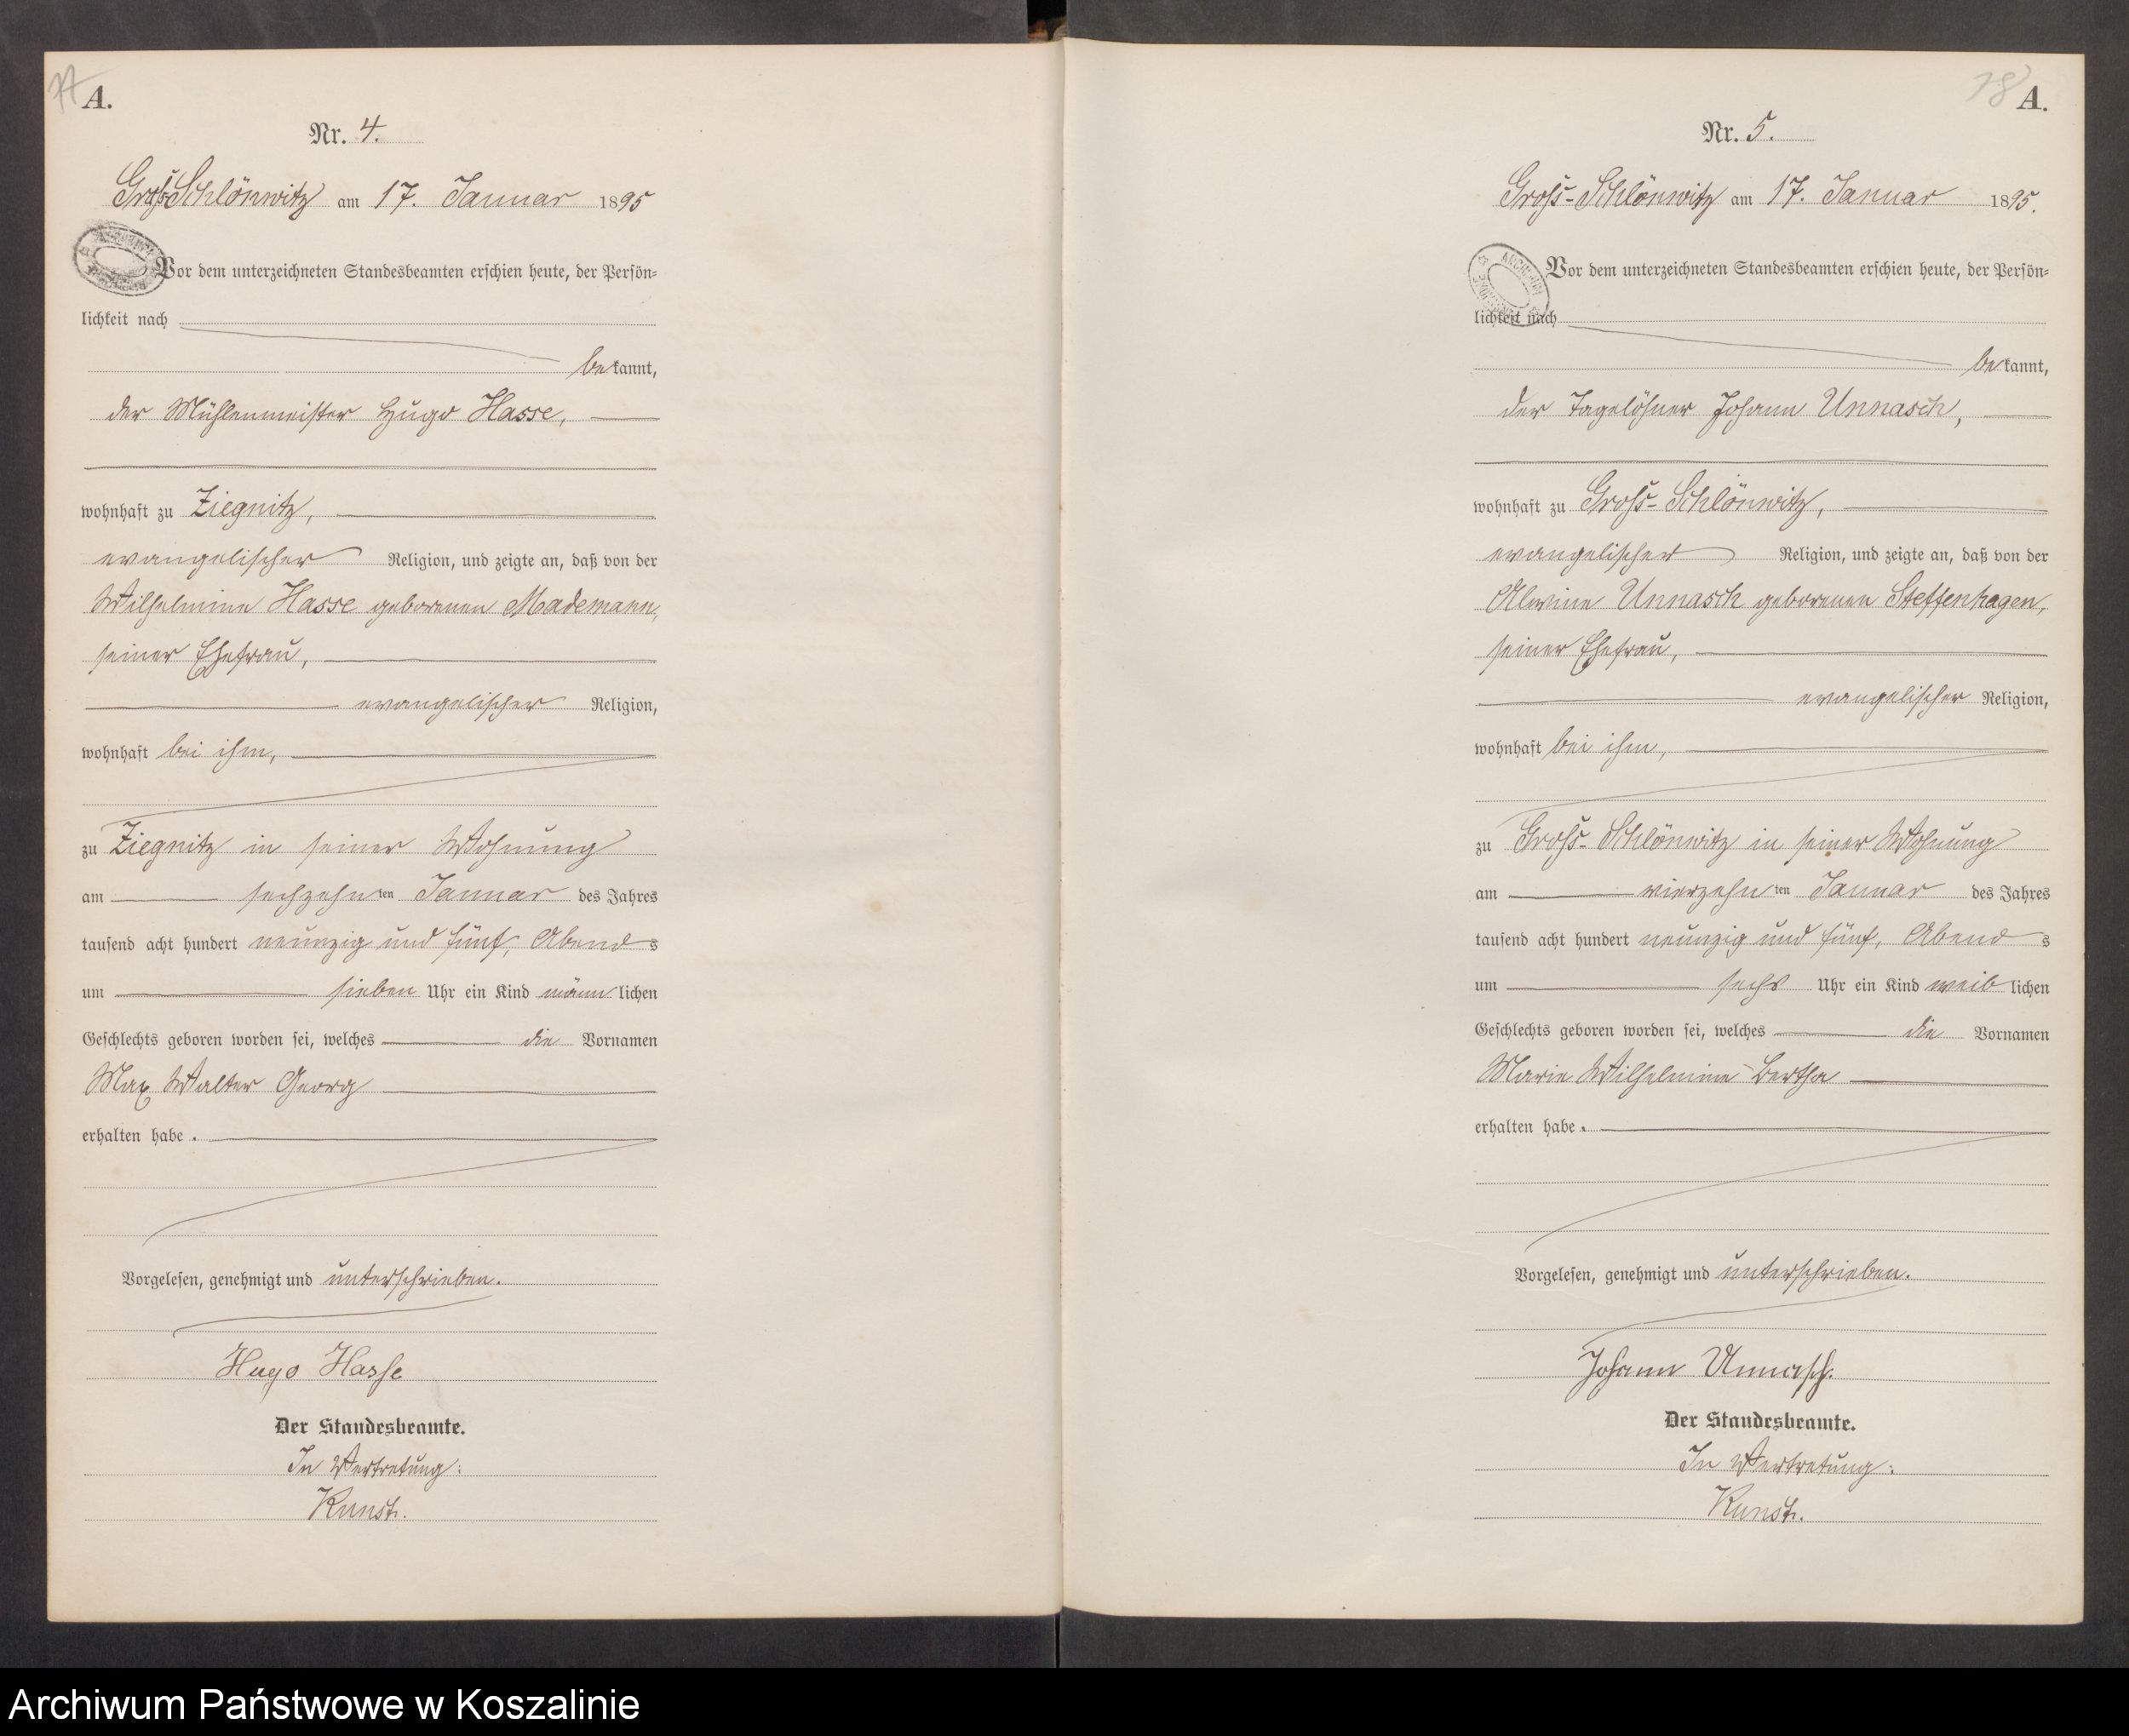 A.
Nr. 4.
Groß-Schlönwitz am 17. Januar 1895
Vor dem unterzeichneten Standesbeamten erschien heute, der Persön=
lichkeit nach
bekannt,
der Mühlenmeister Hugo Hasse,
wohnhaft zu Ziegnitz,
evangelischer Religion, und zeigte an, daß von der
Wilhelmine Hasse geborenen Mademann,
seiner Ehefrau,
evangelischer Religion,
wohnhaft bei ihm,
zu Ziegnitz in seiner Wohnung
am sechzehnten Januar des Jahres
tausend acht hundert neunzig und fünf, Abends
um sieben Uhr ein Kind männlichen
Geschlechts geboren worden sei, welches die Vornamen
Max Walter Georg
erhalten habe.
Vorgelesen, genehmigt und unterschrieben.
Hugo Hasse
Der Standesbeamte.
In Vertretung:
Kunst.
18
A.
Nr. 5.
Groß-Schlönwitz am 17. Januar 1895.
Vor dem unterzeichneten Standesbeamten erschien heute, der Persön=
lichkeit nach
bekannt,
der Tagelöhner Johann Unnasch,
wohnhaft zu Groß-Schlönwitz,
evangelischer Religion, und zeigte an, daß von der
Alwine Unnasch geborenen Steffenhagen,
seiner Ehefrau,
evangelischer Religion,
wohnhaft bei ihm,
zu Groß-Schlönwitz in seiner Wohnung
am vierzehnten Januar des Jahres
tausend acht hundert neunzig und fünf, Abends
um sechs Uhr ein Kind weiblichen
Geschlechts geboren worden sei, welches die Vornamen
Marie Wilhelmine Bertha
erhalten habe.
Vorgelesen, genehmigt und unterschrieben.
Johann Unnasch.
Der Standesbeamte.
In Vertretung:
Kunst.
Archiwum Państwowe w Koszalinie